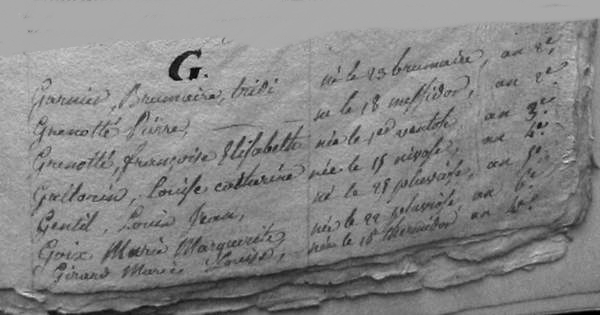 G.
Garnier, Brumaire, tridi né le 23 brumaire, an 2e.
Grenotté Pierre, né le 18 messidor, an 2e.
Grenotté, françoise Elisabeth née le 1er ventose, an 3e.
Gallorin, louise catherine née le 15 nivose, an 4e.
Gentil, Louis Jean, né le 28 pluviose, an 5e.
Goix Marie Marguerite, née le 22 pluviose, an 6e.
Girard Marie Louise, née le 18 thermidor an